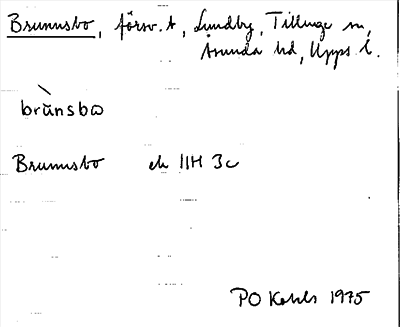 Brunnsbo, försv. t, Lundby, Tillinge sn,
Åsunda hd, Upps. l.
brùnsbω
Brunnsbo ek 11H 3c
PO 1975